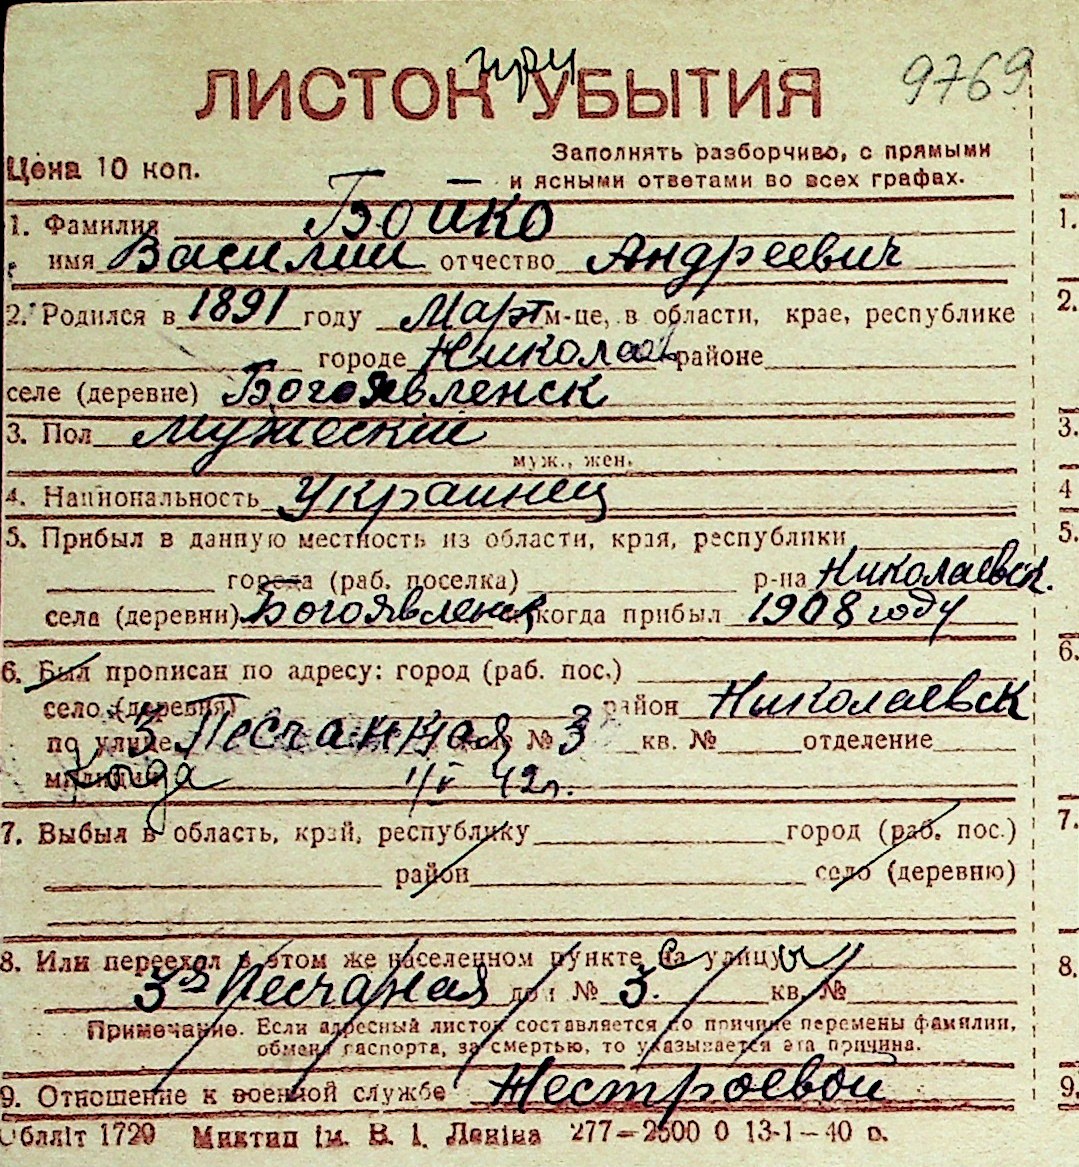 при
ЛИСТОК УБЫТИЯ 9769
Цена 10 коп. Заполнять разборчиво, с прямыми
и ясными ответами во всех графах.
1. Фамилия Бойко 1.
имя Василий отчество Андреевич
2. Родился в 1891 году Март м-це, в области, крае, республике 2.
городе Николаев районе
селе (деревне) Богоявленск
3. Пол Мужеский 3.
муж., жен.
4. Национальность Украинец 4
5. Прибыл в данную местность из области, края, республики 5.
города (раб. поселка) р-на Николаевск.
села (деревни) Богоявленск когда прибыл 1908 году
6. Был прописан по адресу: город (раб. пос.) 6.
село (деревня) район Николаевск
по улице 3 Песчанная № 3 кв. № отделение
милиции Когда 1/V 42г.
7. Выбыл в область, край, республику город (раб. пос.) 7.
район село (деревню)
8. Или переехал в этом же населенном пункте на улицу с ы 8.
3я Песчаная дом № 3. кв. №
Примечание. Если адресный листок составляется по причине перемены фамилии,
обмена паспорта, за смертью, то указывается эта причина.
9. Отношение к военной службе Нестроевой 9.
Обллiт 1729 Миктип iм. В. I. Ленiна 277—2500 0 13-1—40 р.